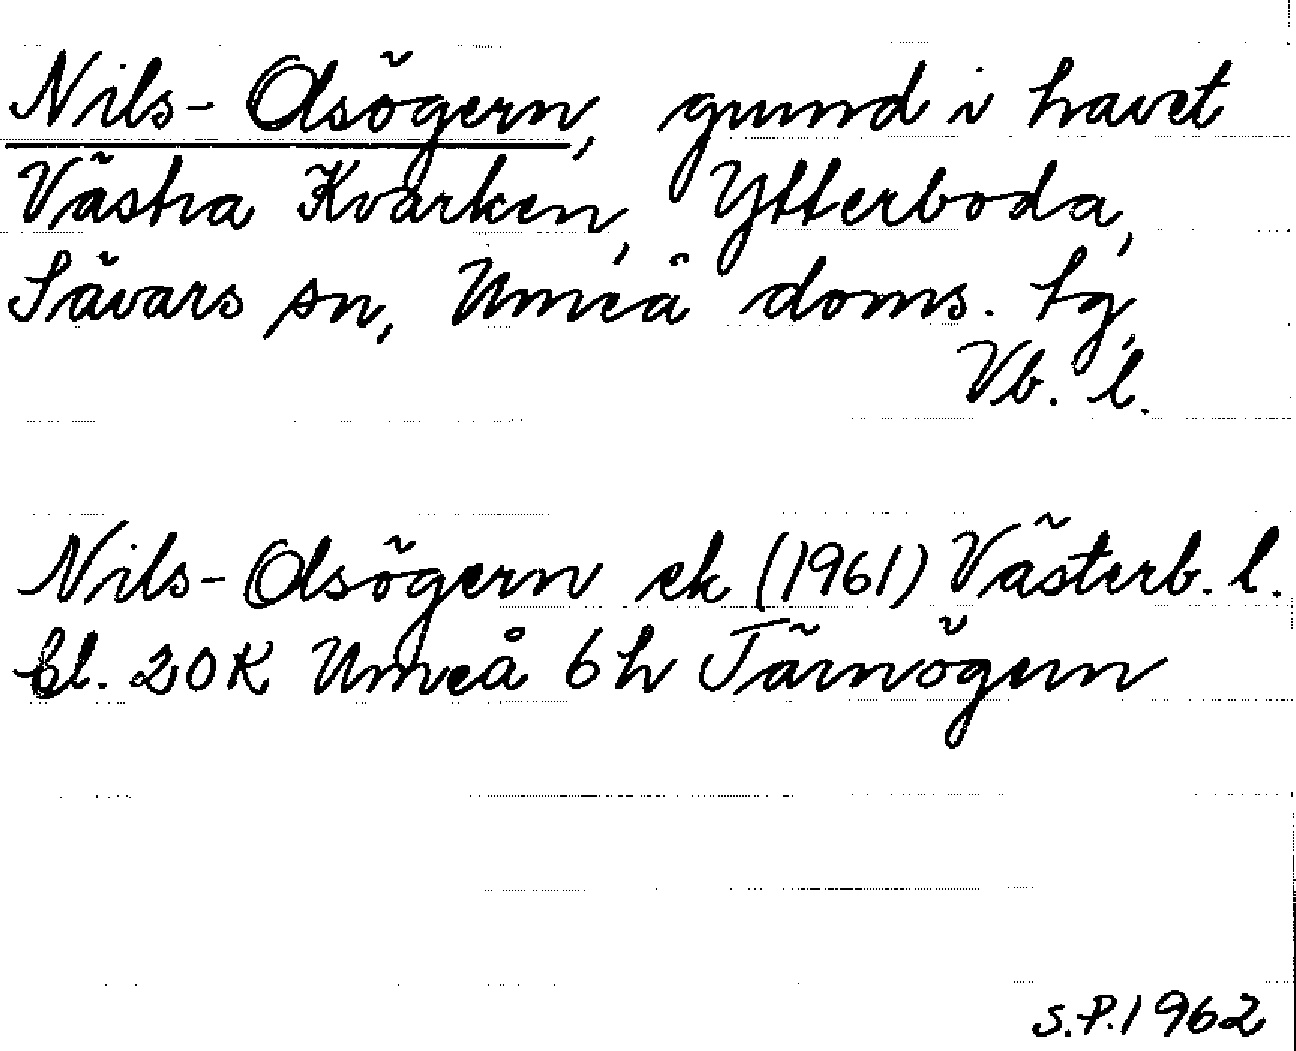 Nils-Olsögern, grund i havet
Västra Kvarken, Ytterboda,
Sävars sn, Umeå doms. tg,
Vb. l.
Nils-Olsögern ek (1961) Västerb. l.
bl. 20K Umeå 6h Tärnögern
S.P. 1962